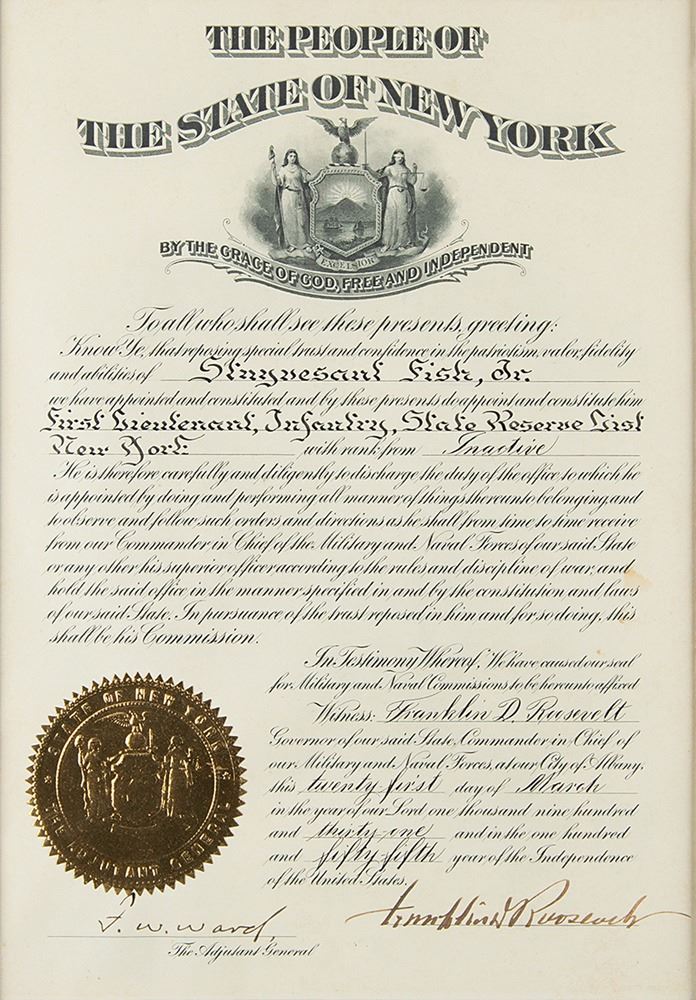 THE PEOPLE OF
THE STATE OF NEW YORK
EXCELSIOR
BY THE GRACE OF GOD, FREE AND INDEPENDENT
To all who shall see these presents, greeting:
Know Ye, that reposing special trust and confidence in the patriotism, valor, fidelity
and abilities of Stuyvesant Fish, Jr.
we have appointed and constituted and by these presents do appoint and constitute him
First Lieutenant, Infantry, State Reserve List
New York with rank from Inactive
He is therefore carefully and diligently to discharge the duty of the office to which he
is appointed by doing and performing all manner of things thereunto belonging, and
to observe and follow such orders and directions as he shall from time to time receive
from our Commander in Chief of the Military and Naval Forces of our said State
or any other his superior officer according to the rules and discipline of war, and
hold the said office in the manner specified in and by the constitution and laws
of our said State. In pursuance of the trust reposed in him and for so doing, this
shall be his Commission.
In Testimony Whereof, We have caused our seal
for Military and Naval Commissions to be hereunto affixed
Witness: Franklin D. Roosevelt
Governor of our said State, Commander in Chief of
our Military and Naval Forces, at our City of Albany,
this twenty-first day of March
in the year of our Lord one thousand nine hundred
and thirty-one and in the one hundred
and fifty-fifth year of the Independence
of the United States.
STATE OF NEW YORK
THE ADJUTANT GENERAL
F. W. Ward,
The Adjutant General
Franklin D Roosevelt